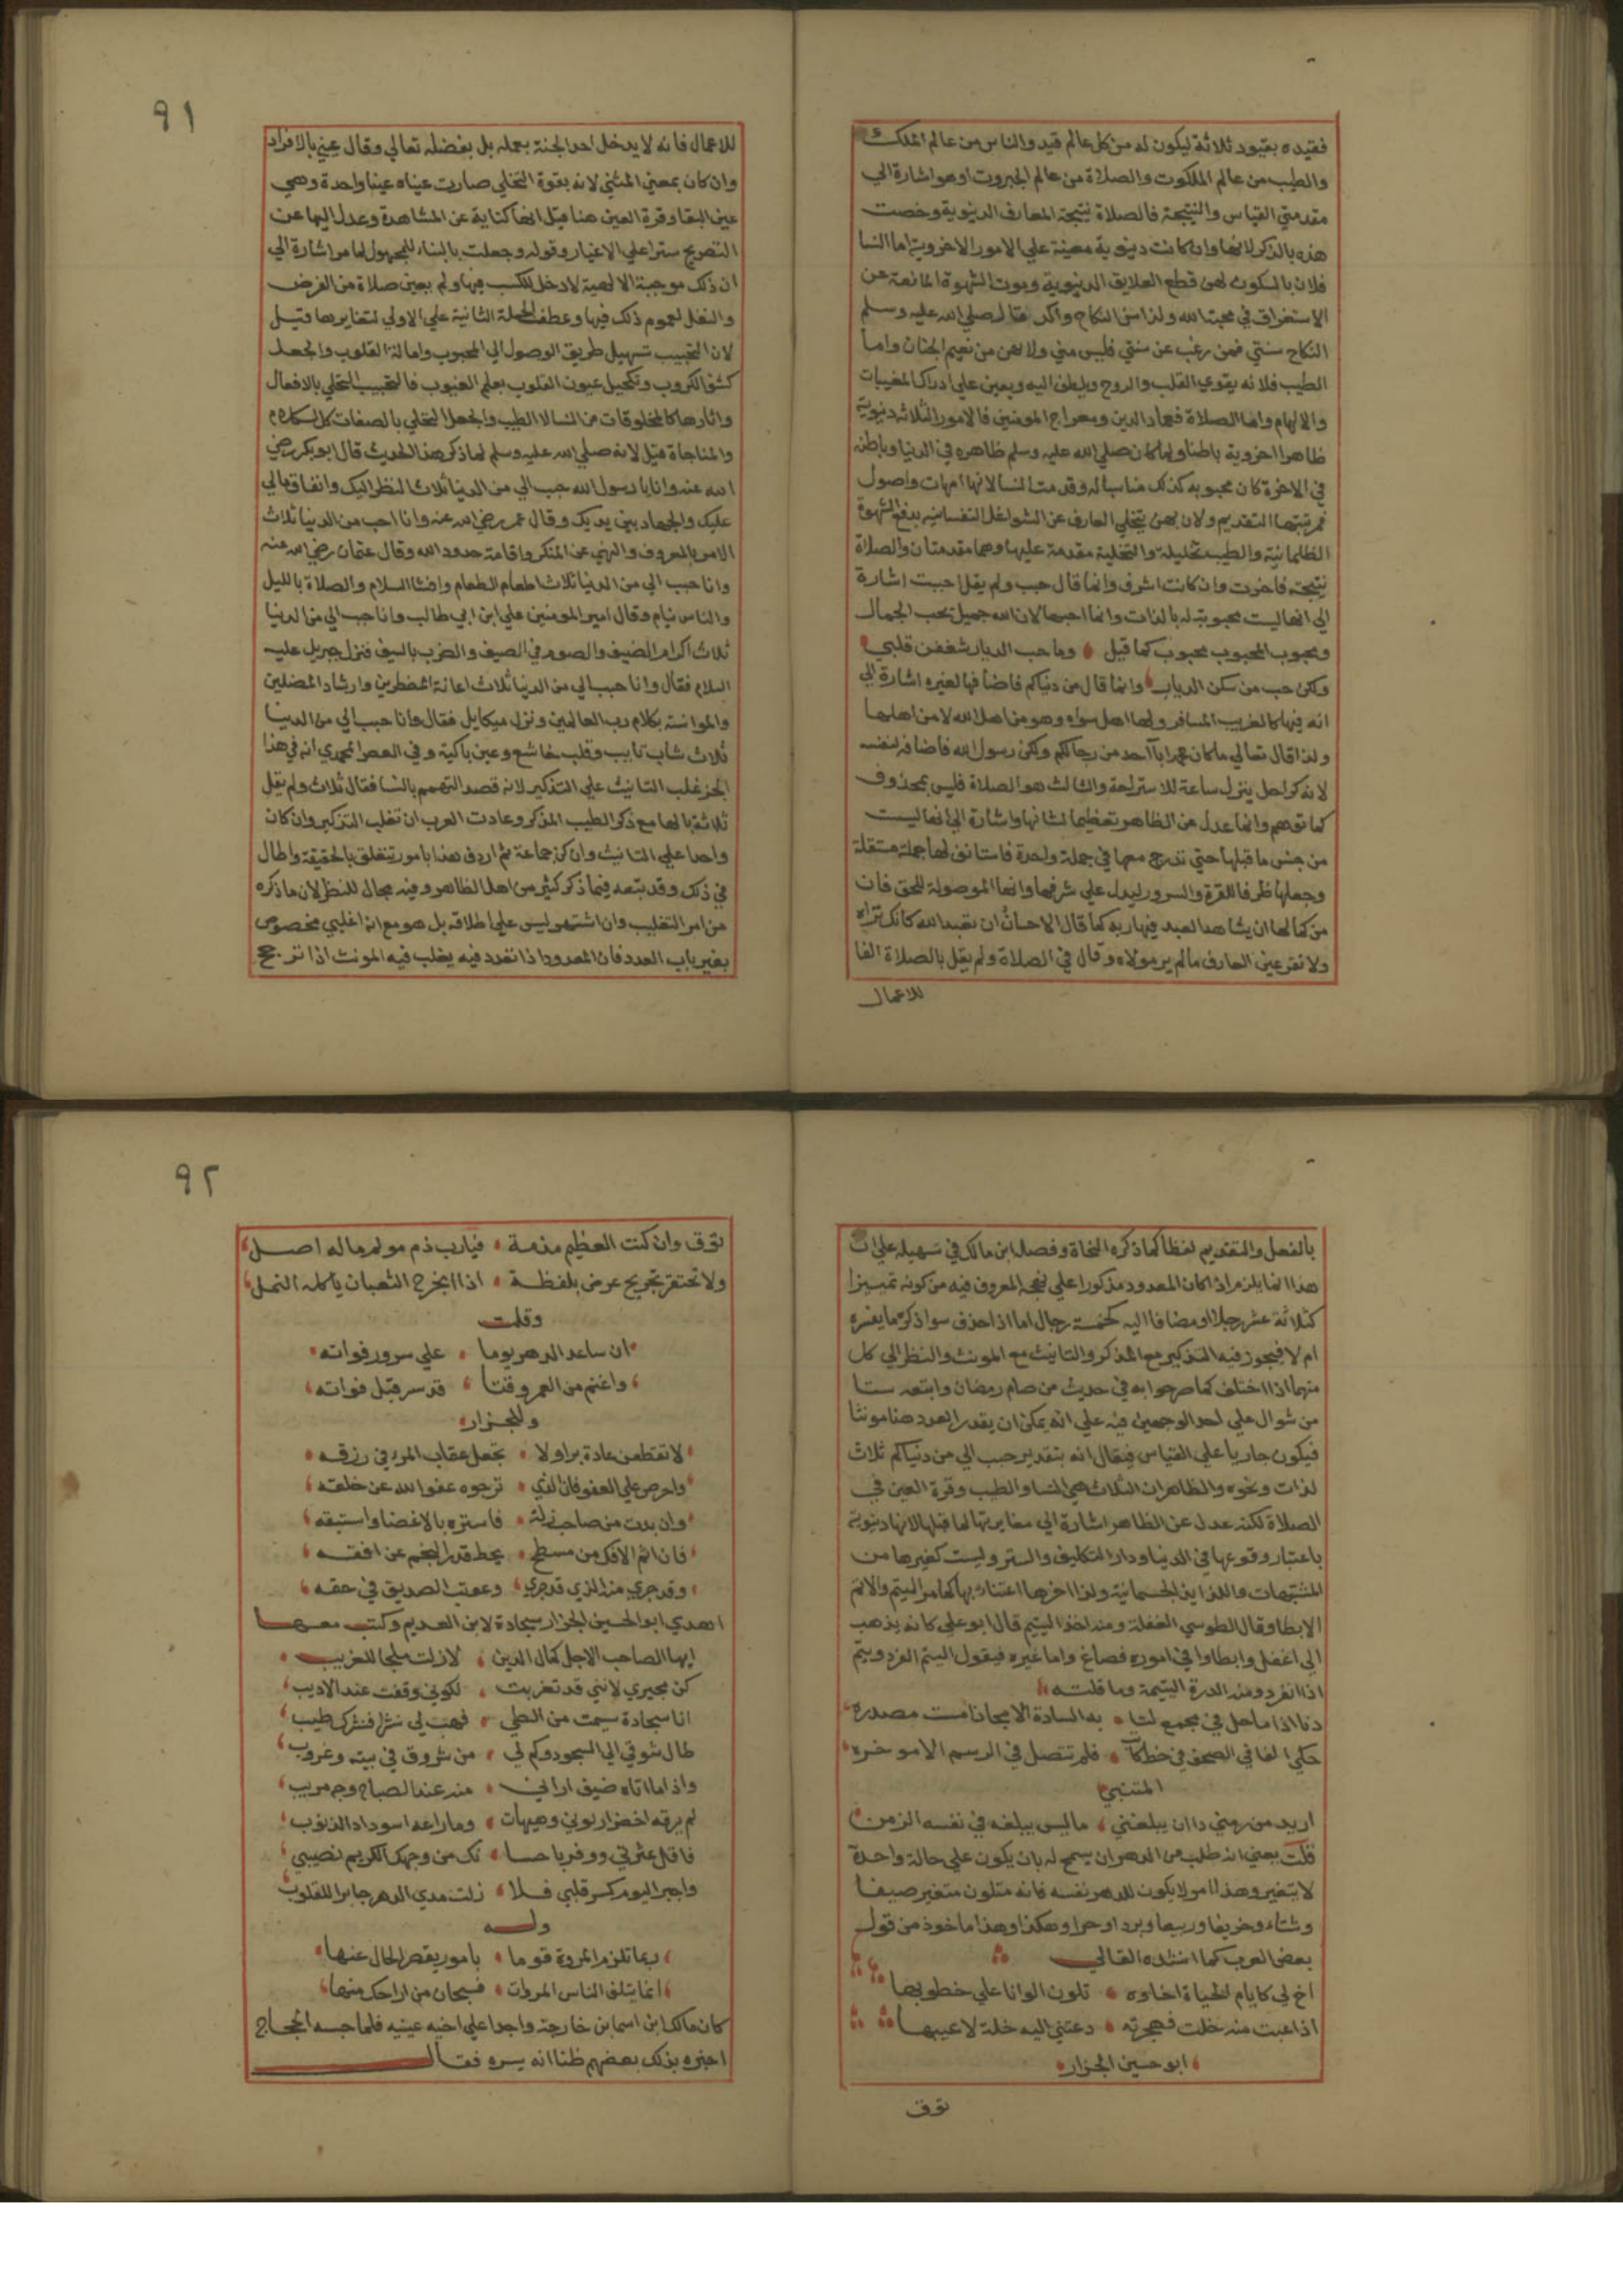 فقيده بقيود ثلاثة ليكون له من كل عالم قيد والناس من عالم الملك
والطيب من عالم الملكوت والصلاة من عالم الجبروت اوهو اشارة الي
مقدمتي القياس والنتيجة فالصلاة نتيجة المعارف الدنيوية وخصت
هذه بالذكر لانها وان كانت دنيوية معينة علي الامور الاخروية اما النسا
فلان بالسكون لهن قطع العلايق الدنيوية وموت الشهوة المانعة عن
الاستغراق في محبة الله ولذا سن النكاح واكد فقال صلي الله عليه وسلم
النكاح سنتي فمن رغب عن سنتي فليس مني ولانهن من نعيم الجنان واما
الطيب فلانه يقوي القلب والروح ويلطف اليه ويعين علي ادراك المغيبات
والالهام واما الصلاة فعماد الدين ومعراج المومنين فالامور الثلاثه دنيوية
ظاهرا اخروية باطنا ولما كان صلي الله عليه وسلم ظاهره في الدنيا وباطنه
في الاخرة كان محبوبه كذلك مناسبا له وقدمت النسا لانها امهات واصول
فمرتبتها التقديم ولان بهن يتخلي العارف عن الشواغل النفسانيه بدفع الشهوة
الظلمانية والطيب تحليله والتخلية مقدمة عليها وهما مقدمتان والصلاة
نتيجة فاخرت وان كانت اشرف وانما قال حبب ولم يقل احببت اشارة
الي انها ليست محبوبة له بالذات وانما احبها لان الله جميل يحب الجمال
ومحبوب المحبوب محبوب كما قيل وما حب الديار شغفن قلبي
ولكن حب من سكن الديارا وانما قال من دنياكم فاضافها لغيره اشارة الي
انه فيها كالغريب المسافر ولها اهل سواه وهو من اهل الله لا من اهلها
ولذا قال تعالي ما كان محمد ابا احد من رجالكم ولكن رسول الله فاضافه لنفسه
لانه كراحل ينزل ساعة للاستراحة والثالث هو الصلاة فليس بمحذوف
كما توهم وانما عدل عن الظاهر تعظيما لشانها واشارة الي انها ليست
من جنس ما قبلها حتي تندرج معها في جملة واحدة فاستانف لها جملة مستقلة
وجعلها ظرفا للقرة والسرور ليدل علي شرفها وانها الموصولة للحق فان
من كمالها ان يشاهد العبد فيها ربه كما قال الاحسان ان تعبد الله كانك تراه
ولا تقر عين العارف ما لم ير مولاه وقال في الصلاة ولم يقل بالصلاة الغا
للاعمال
٩١
للاعمال فانه لا يدخل احد الجنة بعمله بل بفضله تعالي وقال عيني بالافراد
وان كان بمعني المثني لانه بقوة التخلي صارت عيناه عينا واحدة وهي
عين البقا وقرة العين هنا قيل انها كناية عن المشاهدة وعدل اليها عن
التصريح سترا علي الاغيار وقوله وجعلت بالبناء للمجهول لما مر اشارة الي
ان ذلك موجبة الالهية لا دخل للكسب فيها ولم يعين صلاة من الفرض
والنفل لعموم ذلك فيها وعطف الجملة الثانية علي الاولي لتغايرها قيل
لان التحبيب تسهيل طريق الوصول الي المحبوب وامالة القلوب والجعل
كشف الكروب وتكحيل عيون القلوب بعلم الغيوب فالتحبيب التخلي بالافعال
واثارها كالمخلوقات من النسا لا الطيب والجعل التخلي بالصفات كل الكلام
والمناجاة قيل لانه صلي الله عليه وسلم لما ذكر هذا الحديث قال ابو بكر رضي
الله عنه وانا يا رسول الله حبب الي من الدنيا ثلاث النظر اليك وانفاق مالي
عليك والجهاد بين يديك وقال عمر رضي الله عنه وانا احب من الدنيا ثلاث
الامر بالمعروف والنهي عن المنكر واقامة حدود الله وقال عثمان رضي الله عنه
وانا حبب الي من الدنيا ثلاث اطعام الطعام وافشا السلام والصلاة بالليل
والناس نيام وقال امير المومنين علي ابن ابي طالب وانا حبب الي من الدنيا
ثلاث اكرام الضيف والصوم في الصيف والضرب بالسيف فنزل جبريل عليه
السلام فقال وانا حبب الي من الدنيا ثلاث اعانة المضطرين وارشاد المضلين
والموانسة بكلام رب العالمين ونزل ميكايل فقال وانا حبب الي من الدنيا
ثلاث شاب تايب وقلب خاشع وعين باكية وفي العصر المحمدي انه في هذا
الجز غلب التانيث علي التذكير لانه قصد التهمم بالنسا فقال ثلاث ولم يقل
ثلاثة بالها مع ذكر الطيب المذكر وعادت العرب ان تغلب التذكير وان كان
واحدا علي التانيث وان كن جماعة ثم اردف هذا بامور تتعلق بالحقيقة واطال
في ذلك وقد تبعه فيما ذكر كثير من اهل الظاهر وفيه مجال للنظر لان ما ذكره
من امر التغليب وان اشتهر ليس علي اطلاقه بل هو مع انه اغلبي مخصوص
بغير باب العدد فان المعدود اذا تعدد فيه يغلب فيه المونث اذا ترجح
بالفعل والتقديم لفظا كما ذكره النحاة وفصله ابن مالك في تسهيله علي ان
هذا انما يلزم اذا كان المعدود مذكورا علي نهجه المعروف فيه من كونه تمييزا
كثلاثة عشر رجلا او مضافا اليه كخمسة رجال اما اذا حذف سوا ذكر ما يفسره
ام لا فيجوز فيه التذكير مع المذكر والتانيث مع المونث والنظر الي كل
منهما اذا اختلف كما صرحوا به في حديث من صام رمضان واتبعه ستا
من شوال علي احد الوجهين فيه علي انه يمكن ان يقدر العدد هنا مونثا
فيكون جاريا علي القياس فيقال انه بتقدير حبب الي من دنياكم ثلاث
لذات ونحوه والظاهر ان الثلاث هي النسا والطيب وقرة العين في
الصلاة لكنه عدل عن الظاهر اشارة الي مغايرتها لما قبلها لانها دنيوية
باعتبار وقوعها في الدنيا ودار التكليف والستر وليست كغيرها من
المشتهيات واللذايذ الجسمانية ولذا اخرها اعتناء بها كما مر اليتم والاتم
الابطا وقال الطوسي الغفلة ومنه اخذ اليتيم قال ابو علي كانه يذهب
الي اغفل وابطاوا في اموره فصاغ واما غيره فيقول اليتم الفرد ويتم
اذا انفرد ومنه الدرة اليتيمة ومما قلته
دنا اذا ما حل في مجمع لنا به السادة الامجاد امست مصدره
حكي الفا في الصحف في خط كاتب فلم تتصل في الرسم الا موخره
المتنبي
اريد من زمني ذا ان يبلغني ما ليس يبلغه في نفسه الزمن
قلت يعني انه طلب من الدهر ان يسمح له بان يكون علي حالة واحدة
لا يتغير وهذا امر لا يكون للدهر نفسه فانه متلون متغير صيفا
وشتاء وخريفا وربيعا وبردا وحرا وهكذا وهذا ماخوذ من قول
بعض العرب كما انشده القالي
اخ لي كايام الحياة اخاوه تلون الوانا علي خطوبها
اذا عبت منه خلت فهجرته دعتني اليه خلة لا عيبها
ابو حسين الجزار
توق
٩٢
توق وان كنت العظيم مذمة فيارب ذم مولم ما له اصل
ولا تحتقر تجريح عرض بلفظة اذا انجرح الثعبان ياكله النمل
وقلت
ان ساعد الدهر يوما علي سرور فواته
واغنم من العمر وقتا قد سر قبل فواته
وللجزار
لا تقطعن عادة بر ولا تجعل عقاب المرء في رزقه
واحرص علي العفو فان الذي ترجوه عفو الله عن خلقه
وان بدت من صاحب زلة فاستره بالاغضا واستبقه
فان اثم الافك من مسطح يحط قدر النجم عن افقه
وقد جري منه الذي قد جري وعوتب الصديق في حقه
اهدي ابو الحسين الجزار سجادة لابن العديم وكتب معها
ايها الصاحب الاجل كمال الدين لا زلت ملجا للغريب
كن مجيري لانني قد تغربت لكوني وقفت عند الاديب
انا سجادة سيمت من الطي فهب لي نشرا فنشرك طيب
طال شوقي الي السجود وكم لي من شروق في بيته وغروب
واذا ما اتاه ضيف اراني منه عند الصباح وجه مريب
لم يرقه اخضرار لوني وهيهات وما راعه اسوداد الذنوب
فاقل عثرتي ووفر يا حسا نك من وجهك الكريم نصيبي
واجبر اليوم كسر قلبي فلا زلت مدي الدهر جابرا للقلوب
وله
ربما تلزم المروة قوما بامور يقصر الحال عنها
انما يتلف الناس المروات فسبحان من اراحك منها
كان مالك ابن اسما بن خارجة واجدا علي اخيه عيينه فلما حبسه الحجاج
اخبره بذلك بعضهم ظنا انه يسره فقال